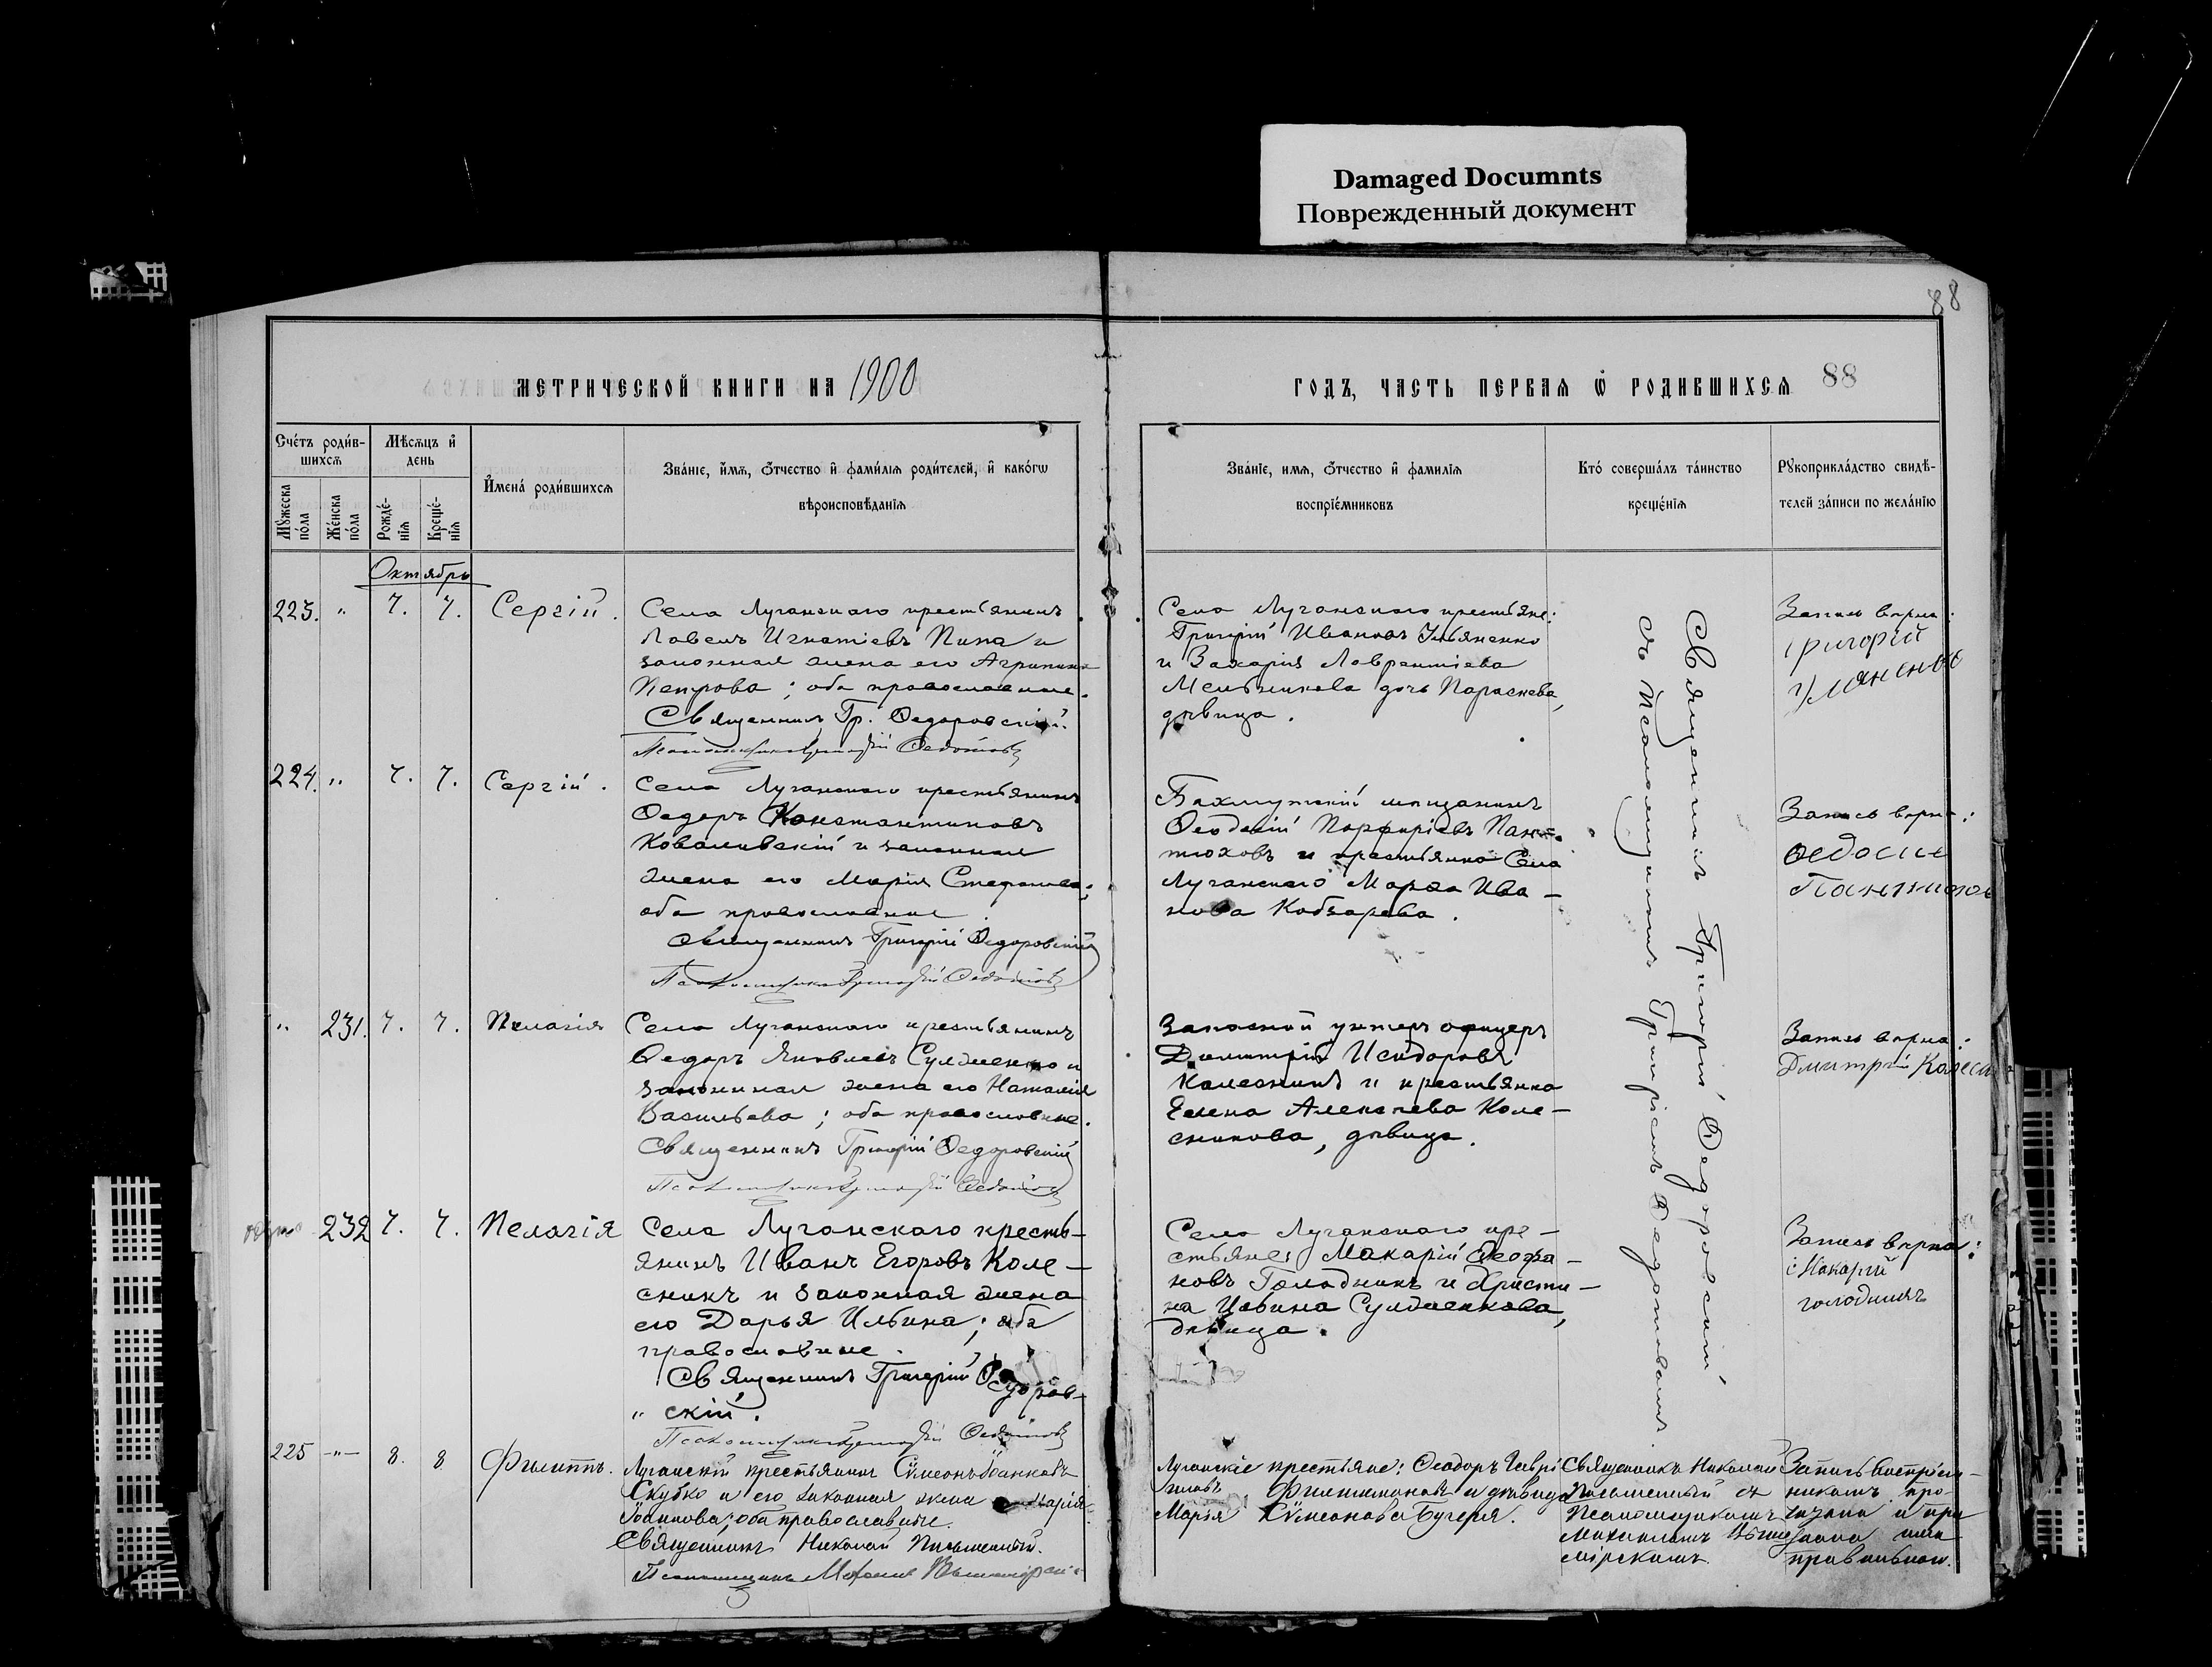 Damaged Documnts
Поврежденный документ
88
МЕТРИЧЕСКОЙ КНИГИ НА 1900
ГОДЪ, ЧАСТЬ ПЕРВАЯ Ѡ РОДИВШИХСЯ 88
Счетъ родив-
шихся
Мѣсяцъ и
день
Мужеска
пола
Женска
пола
Рожде-
нія
Креще-
нія
Имена родившихся
Званіе, имя, отчество и фамилія родителей, и какогѡ
вѣроисповѣданія
Званіе, имя, отчество и фамилія
воспріемниковъ
Кто совершалъ таинство
крещенія
Рукоприкладство свидѣ-
телей записи по желанію
Октябрь
223. " 7. 7. Сергій.
Села Луганскаго крестьянинъ
Павелъ Игнатіевъ Пипа и
законная жена его Агрипина
Петрова; оба православные.
Священникъ Гр. Ѳедоровскій.
Псаломщикъ Григорій Ѳедотовъ
Села Луганскаго крестьяне:
Григорій Ивановъ Ульяненко
и Захарія Лаврентіева
Мельникова дочь Параскева,
дѣвица.
Запись вѣрна:
Григорій
Улянен
224. " 7. 7. Сергій.
Села Луганскаго крестьянинъ
Ѳедоръ Константиновъ
Ковалевскій и законная
жена его Марія Стефанова;
оба православные.
Священникъ Григорій Ѳедоровскій
Псаломщикъ Григорій Ѳедотовъ
Бахмутскій мѣщанинъ
Ѳеодосій Порфиріевъ Пант-
тюховъ и крестьянка Села
Луганскаго Марѳа Ива-
нова Кобзарева.
Запись вѣрна:
Ѳедосие
Пантюхов
" 231. 7. 7. Пелагія
Села Луганскаго крестьянинъ
Ѳедоръ Яковлевъ Сулименко и
законная жена его Наталія
Васильева; оба православные.
Священникъ Григорій Ѳедоровскій
Псаломщикъ Григорій Ѳедотовъ
Запасной унтеръ офицеръ
Димитрій Исидоровъ
Колесникъ и крестьянка
Елена Алексѣева Коле-
сникова, дѣвица.
Запись вѣрна:
Дмитрій Колесн
232 7. 7. Пелагія
Села Луганскаго кресть-
янинъ Иванъ Егоровъ Коле-
сникъ и законная жена
его Дарья Ильина; оба
православные.
Священникъ Григорій Ѳедоров-
" скій.
Псаломщикъ Григорій Ѳедотовъ
Села Луганскаго кре-
стьяне: Макарій Ѳеофа-
новъ Голодникъ и Христи-
на Савина Сулименкова,
дѣвица.
Запись вѣрна:
Макарій
голодникъ
Священникъ Григорій Ѳедоровскій
съ Псаломщикомъ Григоріемъ Ѳедотовымъ.
225 -"- 8. 8. Филиппъ.
Луганскій крестьянинъ Сѵмеонъ Іоанновъ
Скубко и его законная жена Марія
Іоаннова; оба православные.
Священникъ Николай Письменный.
Псаломщикъ Михаилъ Вышемірскій
Луганскіе крестьяне: Ѳеодоръ Гаврі
иловъ Филимоновъ и дѣвица
Марія Сѵмеонова Бугеря.
Священникъ Николай
Письменный съ
Псаломщикомъ
Михаиломъ Выше
мірскимъ
Запись воспріем-
никамъ про-
читана и при
знана ими
правильною.